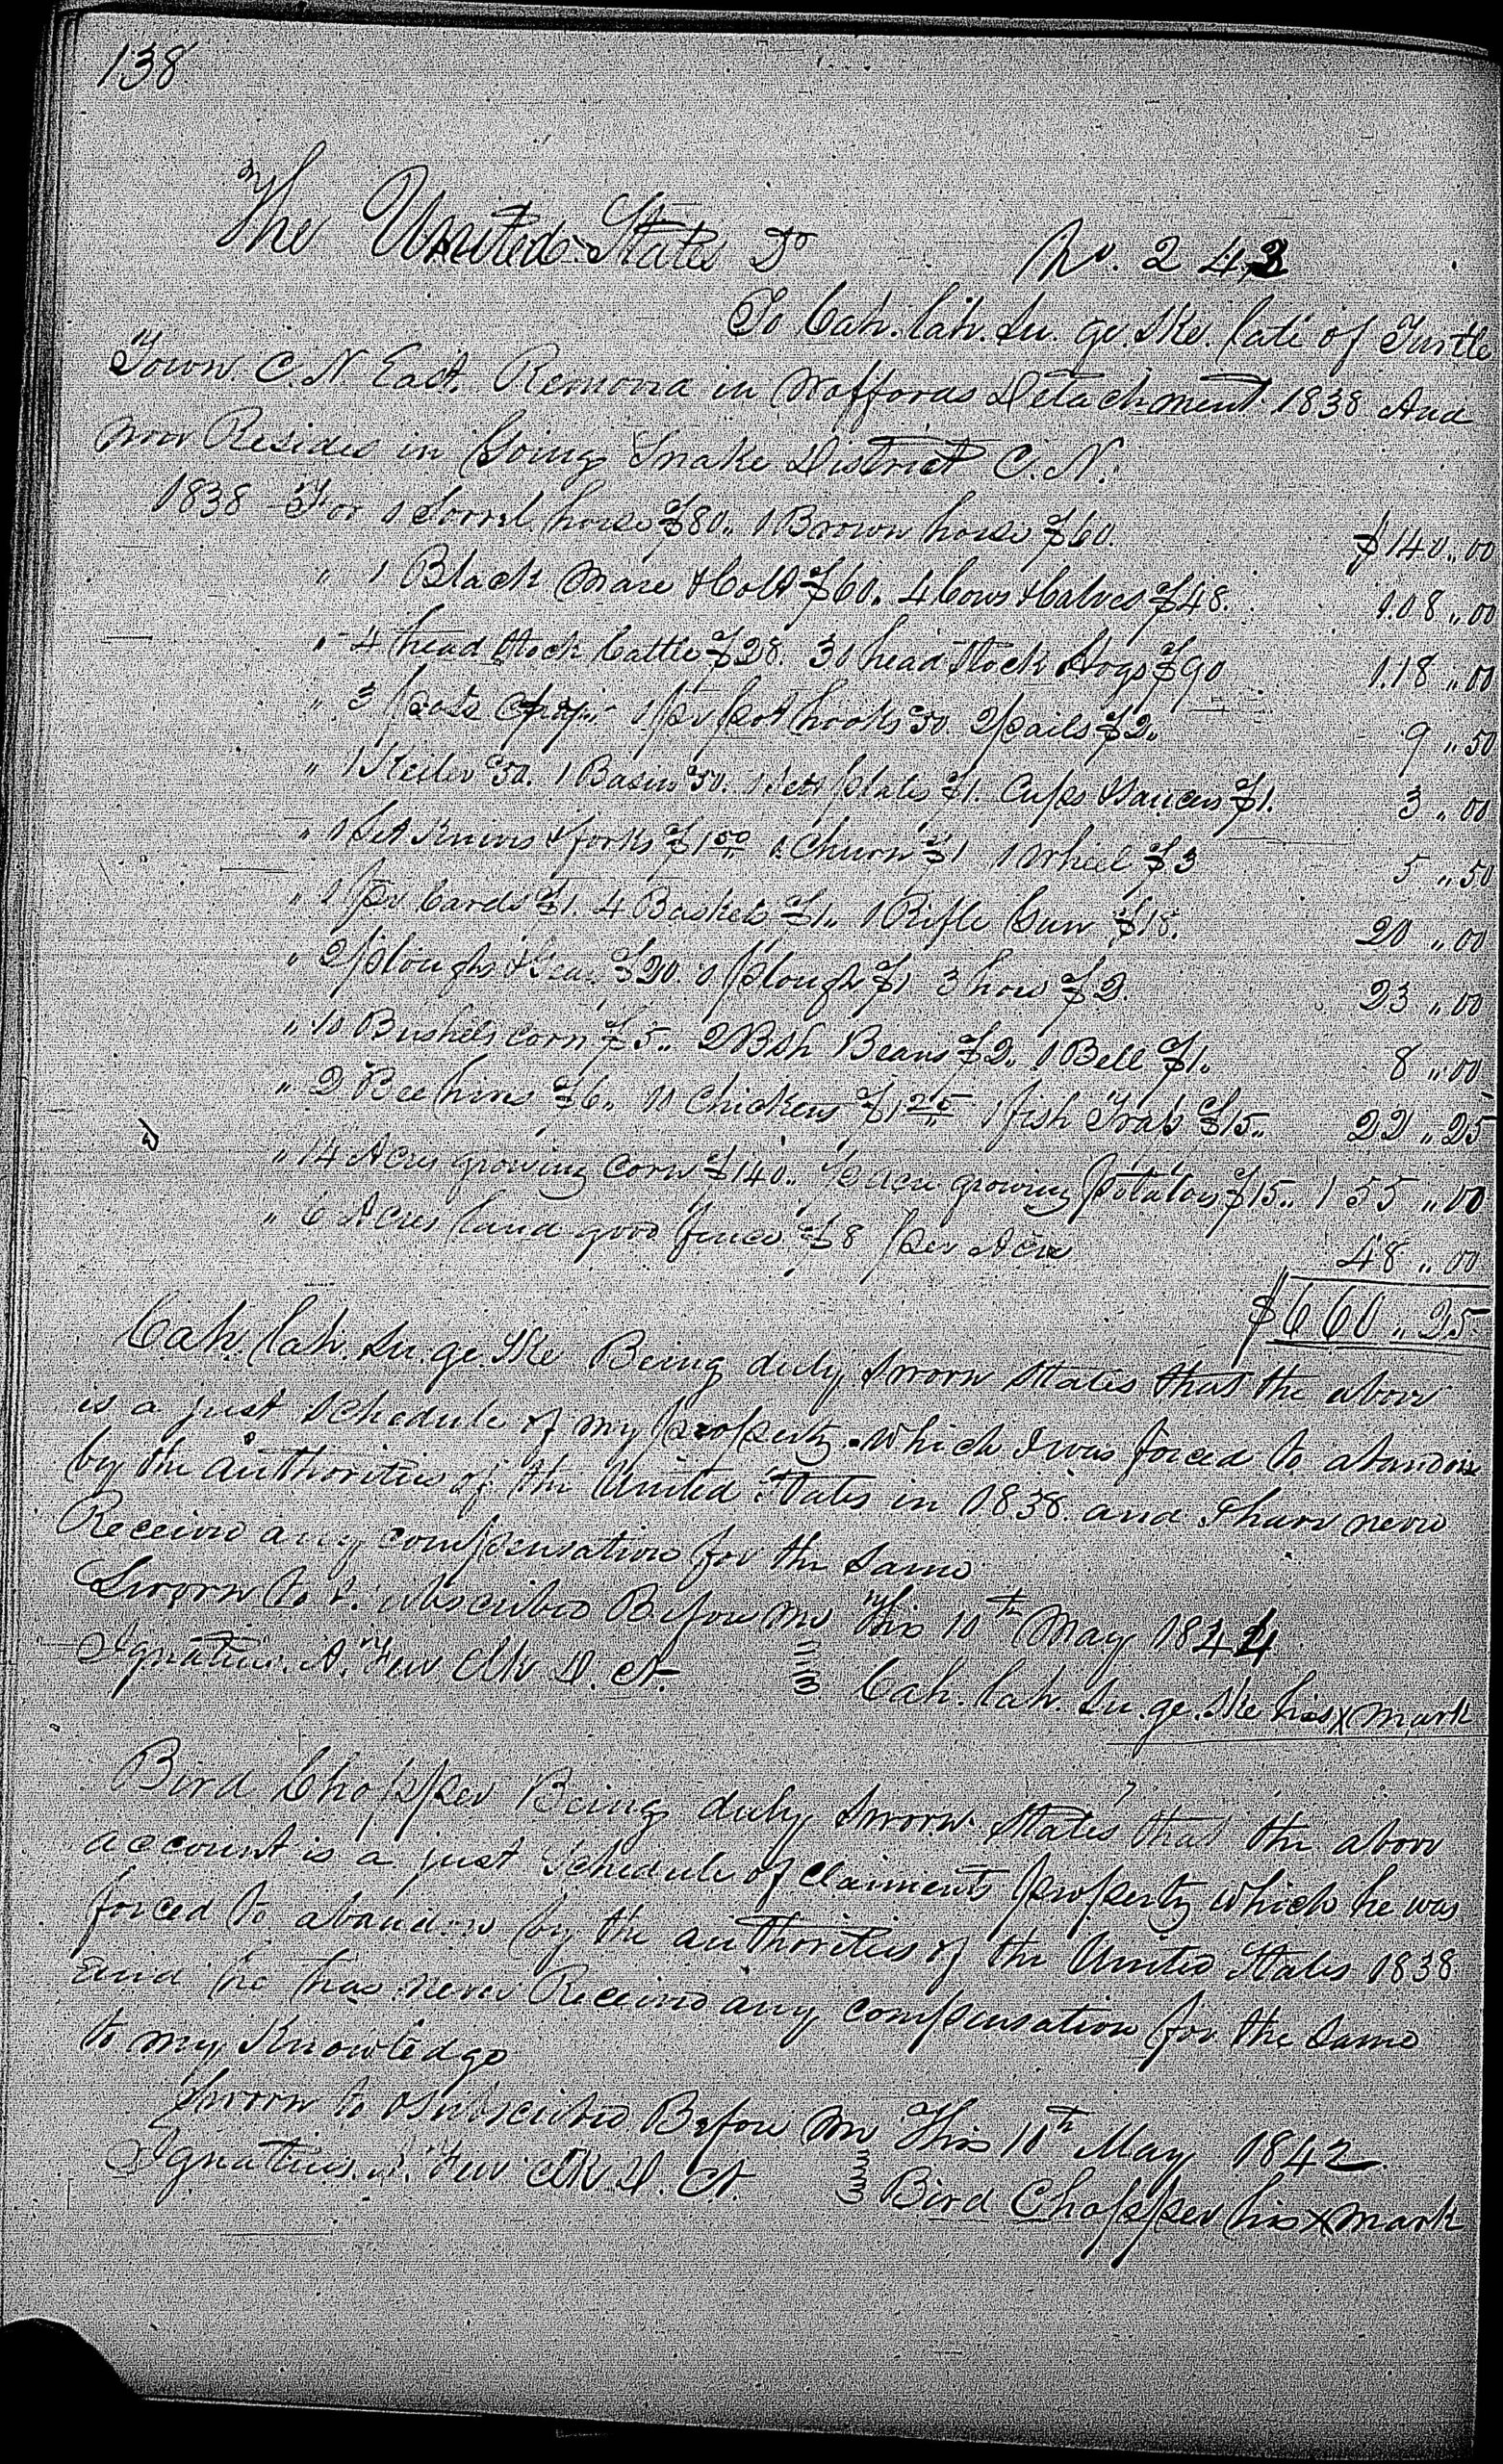 138
The United States Dr No. 243
To Cah. lah. su. ge. ske. late of Turtle
Town C. N. East Removd in Woffords Detachment 1838 And
now Resides in Going Snake District C. N.
1838 For 1 Sorrel horse $80.. 1 Brown horse $60. $140..00
" 1 Black Mare & Colt $60. 4 Cows & Calves $48. 108..00
" 4 head Stock Cattle $28. 30 head Stock Hogs $90 118..00
" 3 pots 1 pr pot hooks 50. 2 pails $2. 9..50
" 1 Keiler 50. 1 Basin 50. 1 Sett plates $1. Cups & Saucers $1. 3..00
" 1 Set Knives & forks $1 50 1 Churn $1 1 Wheel $3 5..50
" 1 pr Cards $1. 4 Baskets $1.. 1 Rifle Gun $18. 20..00
" 2 ploughs & Gear $20. 1 plough $1 3 hoes $2. 23..00
" 10 Bushels corn $5.. 2 Bsh Beans $2. 1 Bell $1. 8..00
" 2 Bee hives $6.. 10 Chickens $1 25 1 fish Trap $15.. 22..25
" 14 Acres growing corn $140.. acre growing potatoes $15.. 155..00
" 6 Acres land good fence $8 per Acre 48..00
$660..25
Cah. lah. su. ge. ske Being duly sworn states that the above
is a just schedule of my property. which I was forced to abandon
by the authorities of the United States in 1838. and I have never
Received any compensation for the same
Sworn to & subscribed Before me This 10th May 1842
Ignatius. A. Few Clk D. Ct. Cah. lah. su. ge. ske his x mark
Bird Chopper Being duly sworn States that the above
account is a just Schedule of claiments property which he was
forced to abandon by the authorities of the United States 1838
and he has never Received any compensation for the same
to my Knowledge
Sworn to & subscribed Before Me This 10th May 1842.
Ignatius. A. Few Clk D. Ct. Bird Chopper his x mark